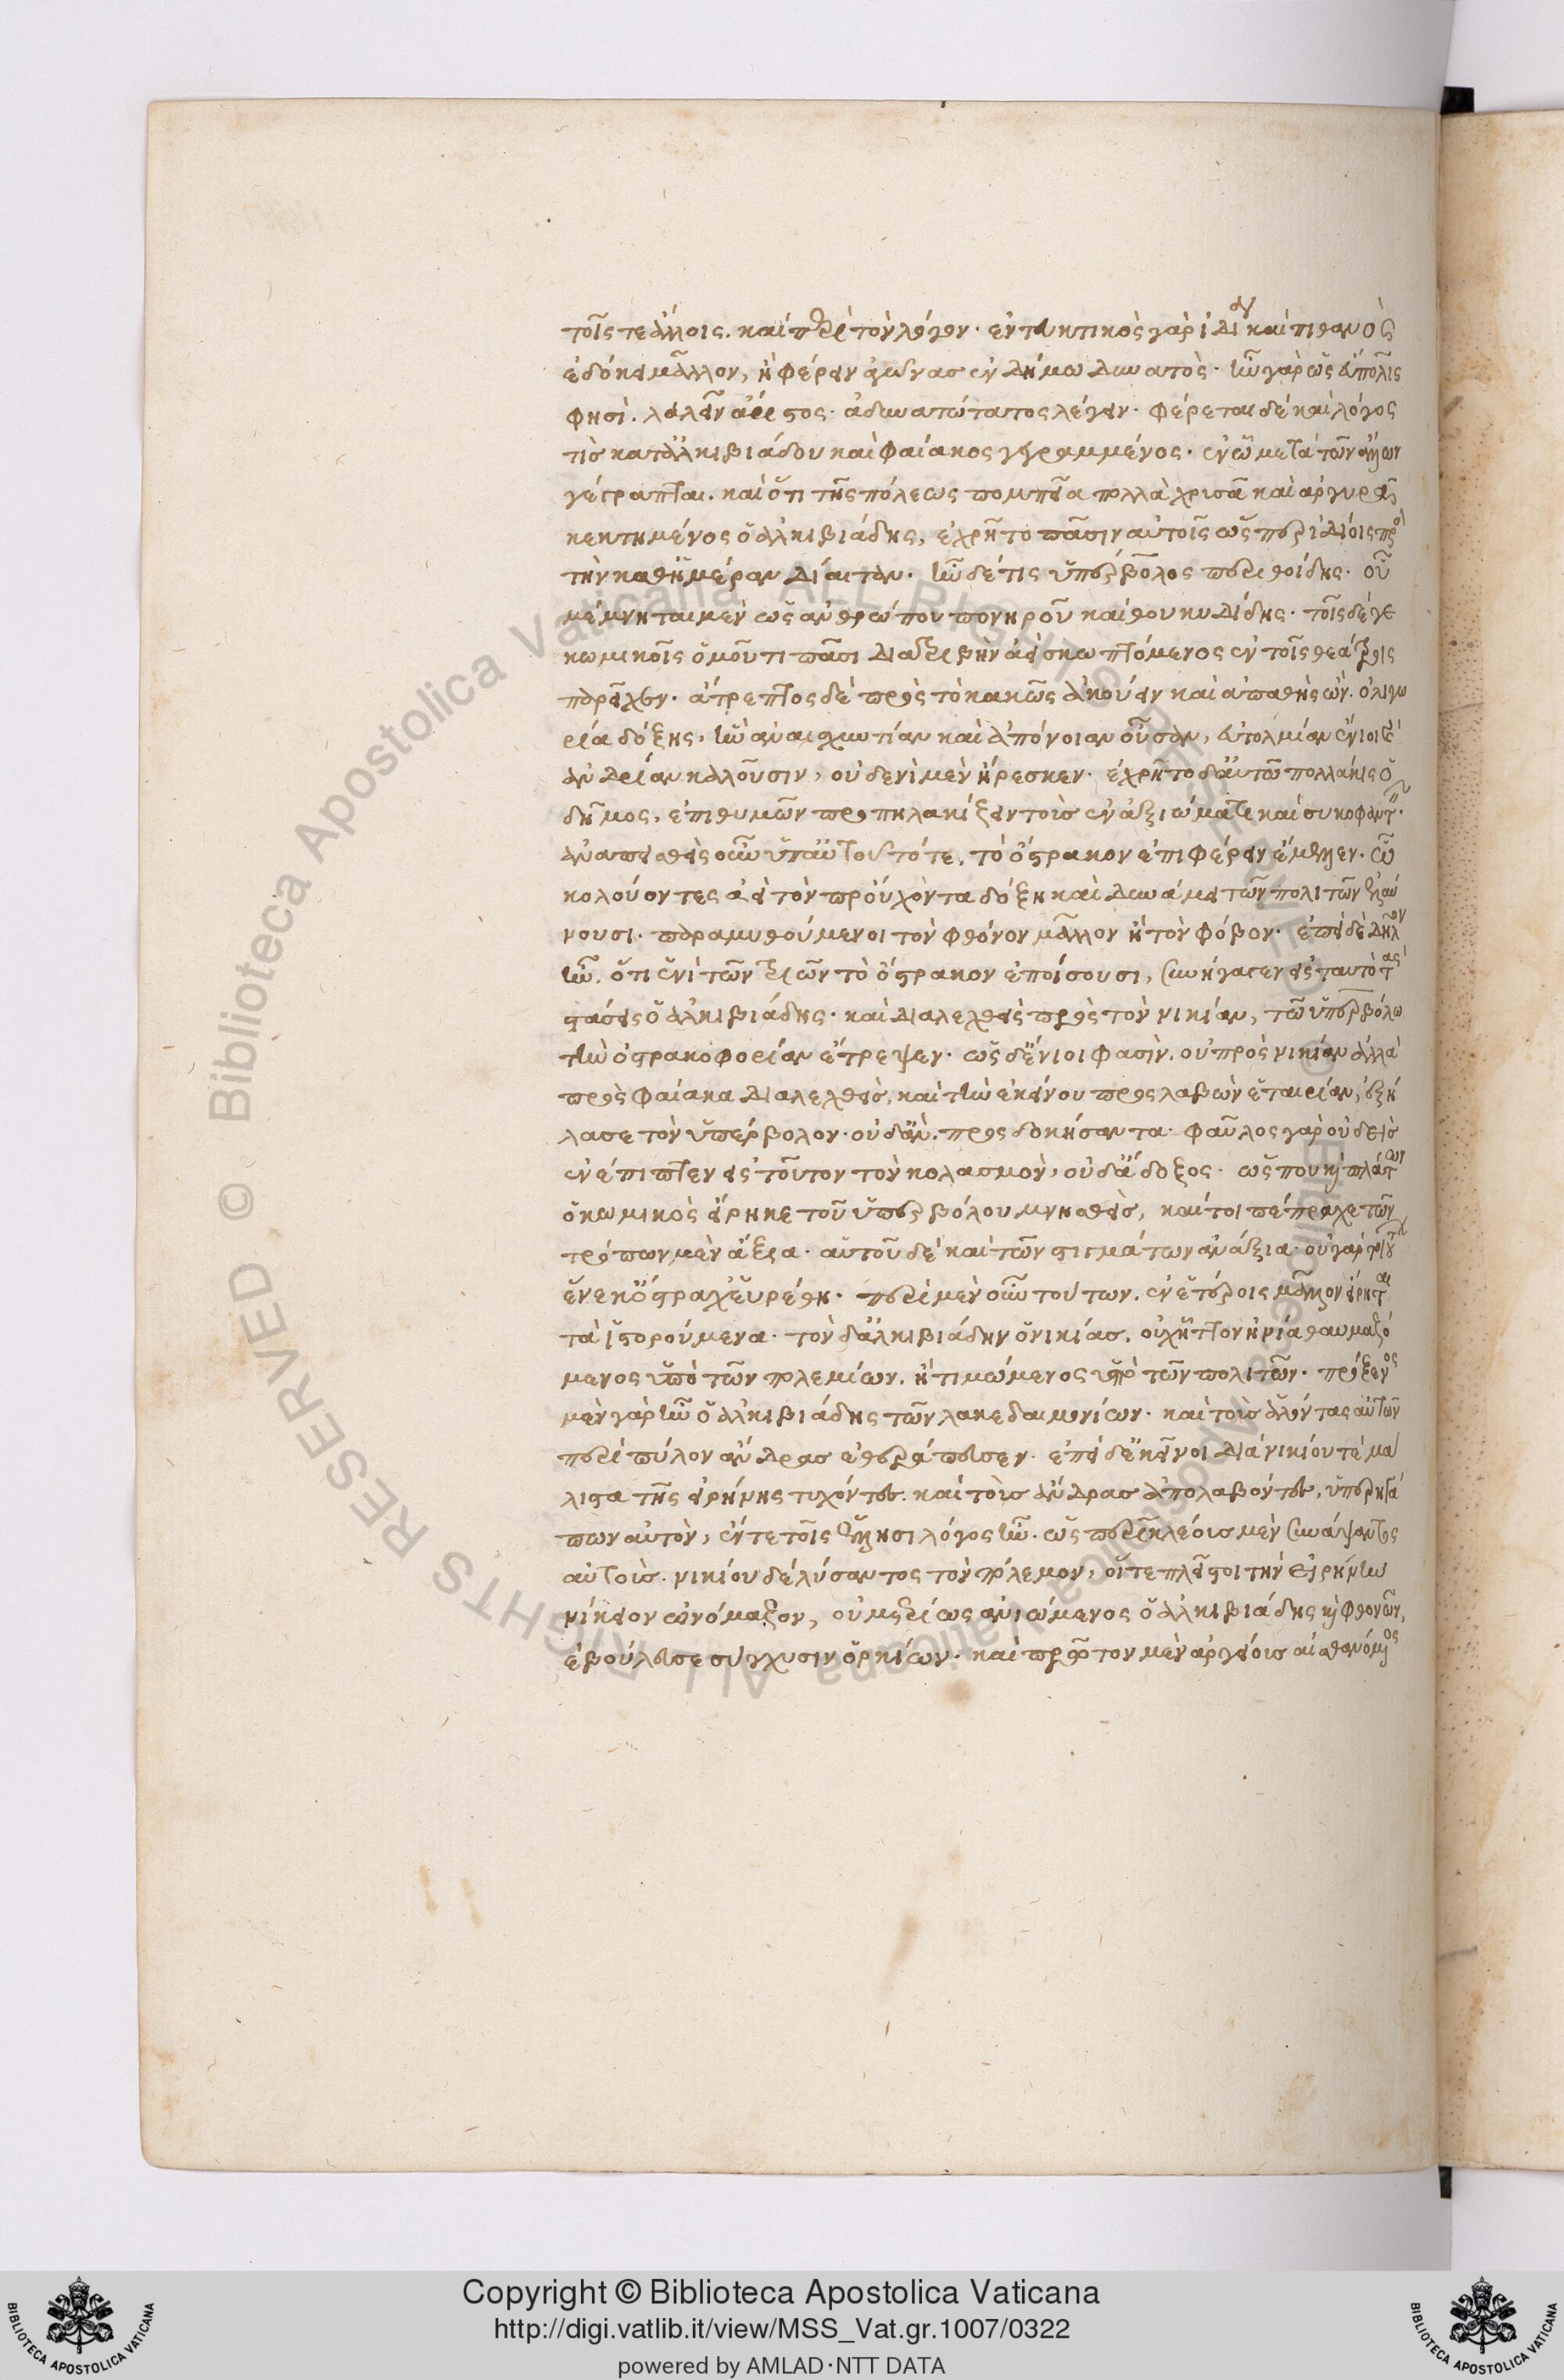 τοῖς τε ἄλλοις. καὶ περὶ τὸν λόγον. ἐντευκτικὸς γὰρ ἰδίᾳ καὶ πιθανὸς
ἐδόκει μᾶλλον, ἢ φέρειν ἀγῶνας ἐν δήμω δυνατὸς. ἦν γὰρ ὡς εὔπολις
φησὶ. λαλεῖν ἄριστος. ἀδυνατώτατος λέγειν. φέρεται δὲ καὶ λόγος
τὶς κατ' ἀλκιβιάδου καὶ φαίακος γεγραμμένος. ἐν ὧ μετὰ τῶν ἄλλων
γέγραπται. καὶ ὅτι τῆς πόλεως πομπεῖα πολλὰ χρυσᾶ καὶ ἀργυρᾶ
κεκτημένος ὁ ἀλκιβιάδης, ἐχρῆτο πᾶσιν αὐτοῖς ὥσπερ ἰδίοις πρὸς
τὴν καθ' ἡμέραν δίαιταν. ἦν δέ τις ὑπέρβολος περιθοίδης. οὗ
μέμνηται μὲν ὡς ἀνθρώπου πονηροῦ καὶ θουκυδίδης. τοῖς δέ γε
κωμικοῖς ὁμοῦ τι πᾶσι διατριβὴν ἀεὶ σκωπτόμενος ἐν τοῖς θεάτροις
παρεῖχεν. ἄτρεπτος δὲ πρὸς τὸ κακῶς ἀκούειν καὶ ἀπαθὴς ὢν. ὀλιγω
ρία δόξης, ἣν ἀναισχυντίαν καὶ ἀπόνοιαν οὖσαν, εὐτολμίαν ἔνιοι τὲ
ἀνδρίαν καλοῦσιν, οὐδενὶ μὲν ἤρεσκεν. ἐχρῆτο δ' αὐτῶ πολλάκις ὁ
δῆμος, ἐπιθυμῶν προπηλακίζειν τοὺς ἐν ἀξιώματι καὶ συκοφαντεῖν.
ἀναπεισθεὶς οὖν ὑπ' αὐτοῦ τότε, τὸ ὄστρακον ἐπιφέρειν ἔμελλεν. ὧ
κολούοντες ἀεὶ τὸν προὔχοντα δόξη καὶ δυνάμει τῶν πολιτῶν ἐλαύ
νουσι. παραμυθούμενοι τὸν φθόνον μᾶλλον ἢ τὸν φόβον. ἐπεὶ δὲ δῆλον
ἦν. ὅτι ἑνὶ τῶν τριῶν τὸ ὄστρακον ἐποίσουσι, συνήγαγεν εἰς ταυτὸ τὰς
στάσεις ὁ ἀλκιβιάδης. καὶ διαλεχθεὶς πρὸς τὸν νικίαν, τῶ ὑπερβόλω
τὴν ὀστρακοφορίαν ἔτρεψεν. ὡς δ' ἔνιοι φασὶν. οὐ πρὸς νικίαν ἀλλὰ
πρὸς φαίακα διαλεχθεὶς, καὶ τὴν ἐκείνου προσλαβὼν ἑταιρίαν, ἐξή
λασε τὸν ὑπέρβολον. οὐδ' ἂν. προσδοκήσαντα. φαῦλος γὰρ οὐδεὶς
ἐνέπιπτεν εἰς τοῦτον τὸν κολασμὸν, οὐδ' ἄδοξος. ὥς που καὶ πλάτων
ὁ κωμικὸς εἴρηκε τοῦ ὑπερβόλου μνησθεὶς, καί τοι πέπραχε τῶν
τρόπων μὲν ἄξια. αὑτοῦ δὲ καὶ τῶν στιγμάτων ἀνάξια. οὐ γὰρ τοιούτων
εἵνεκ' ὄστραχ' εὑρέθη. περὶ μὲν οὖν τούτων. ἐν ἑτέροις μᾶλλον εἴρηται
τὰ ἱστορούμενα. τὸν δ' ἀλκιβιάδην ὁ νικίας. οὐχ ἧττον ἠνία θαυμαζό
μενος ὑπὸ τῶν πολεμίων. ἢ τιμώμενος ὑπὸ τῶν πολιτῶν. πρόξενος
μὲν γὰρ ἦν ὁ ἀλκιβιάδης τῶν λακεδαιμονίων. καὶ τοὺς ἁλόντας αὐτῶν
περὶ πύλον ἄνδρας ἐθεράπευσεν. ἐπεὶ δ' ἐκεῖνοι διὰ νικίου τὲ μά
λιστα τῆς εἰρήνης τυχόντες. καὶ τοὺς ἄνδρας ἀπολαβόντες, ὑπερηγά
πων αὐτὸν, ἔν τε τοῖς ἕλλησι λόγος ἦν. ὡς περικλέους μὲν συνάψαντος
αὐτοὺς. νικίου δὲ λύσαντος τὸν πόλεμον, οἵ τε πλεῖστοι τὴν εἰρήνην
νίκειον ὠνόμαζον, οὐ μετρίως ἀνιώμενος ὁ ἀλκιβιάδης καὶ φθονῶν,
ἐβούλευσε σύγχυσιν ὁρκίων. καὶ πρῶτον μὲν ἀργείους αἰσθανόμενος
Copyright © Biblioteca Apostolica Vaticana
http://digi.vatlib.it/view/MSS_Vat.gr.1007/0322
powered by AMLAD·NTT DATA
BIBLIOTECA APOSTOLICA VATICANA
BIBLIOTECA APOSTOLICA VATICANA
© Biblioteca Apostolica Vaticana ALL RIGHTS RESERVED
© Biblioteca Apostolica Vaticana ALL RIGHTS RESERVED